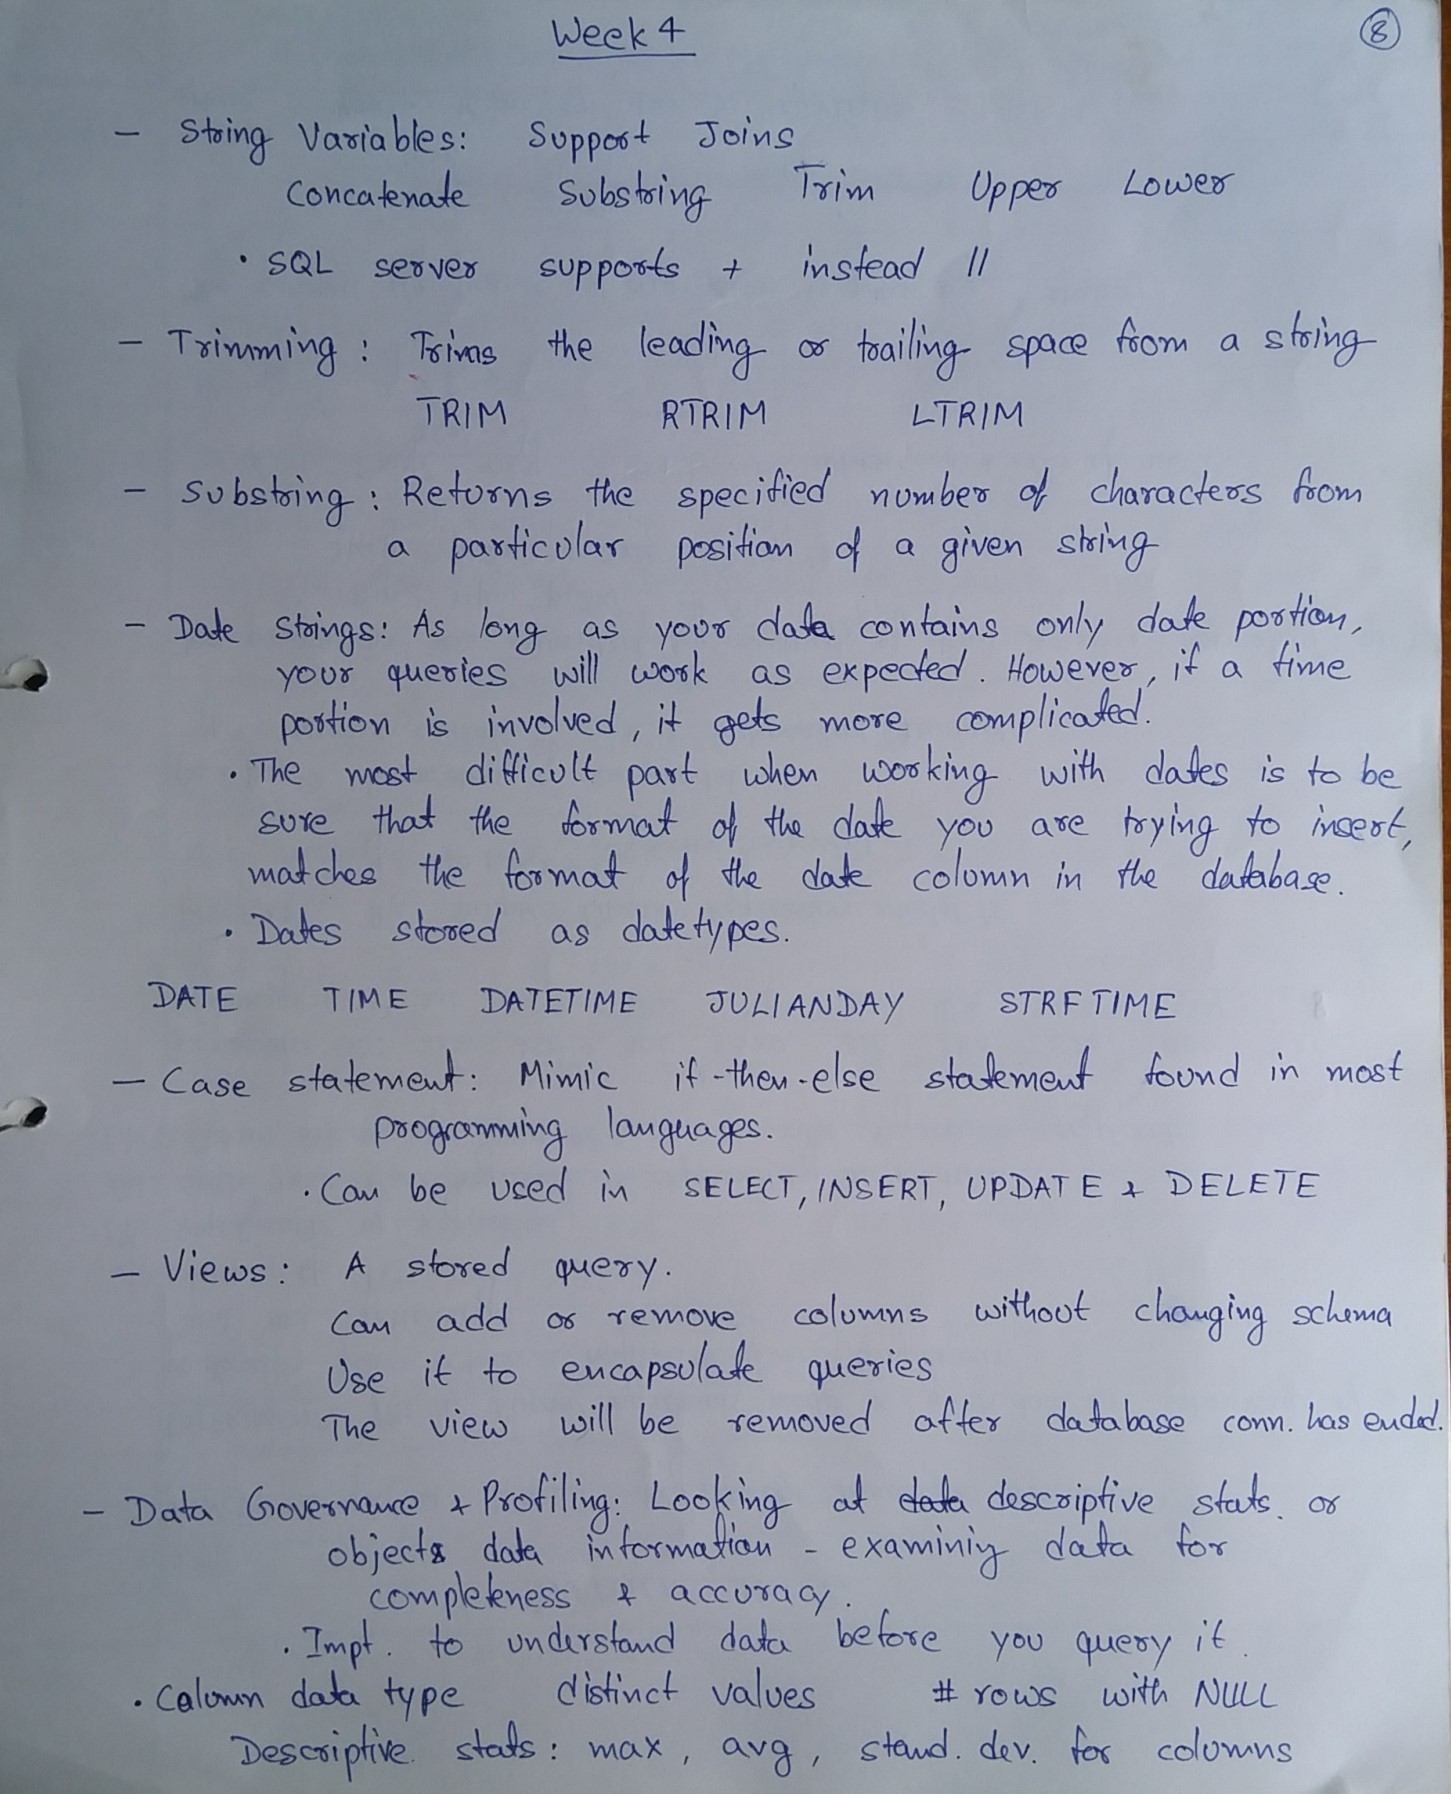 Week 4
8
- String Variables: Support Joins
Concatenate Substring Trim Upper Lower
• SQL server supports + instead ||
- Trimming : Trims the leading or trailing space from a string
TRIM RTRIM LTRIM
- Substring : Returns the specified number of characters from
a particular position of a given string
- Date Strings: As long as your data contains only date portion,
your queries will work as expected. However, if a time
portion is involved, it gets more complicated.
• The most difficult part when working with dates is to be
sure that the format of the date you are trying to insert,
matches the format of the date column in the database.
• Dates stored as datetypes.
DATE TIME DATETIME JULIANDAY STRFTIME
- Case statement: Mimic if-then-else statement found in most
programming languages.
• Can be used in SELECT, INSERT, UPDATE & DELETE
- Views: A stored query.
Can add or remove columns without changing schema
Use it to encapsulate queries
The view will be removed after database conn. has ended.
- Data Governance & Profiling: Looking at data descriptive stats. or
objects data information - examining data for
completeness & accuracy.
• Impt. to understand data before you query it.
• Column data type distinct values # rows with NULL
Descriptive stats : max, avg, stand. dev. for columns